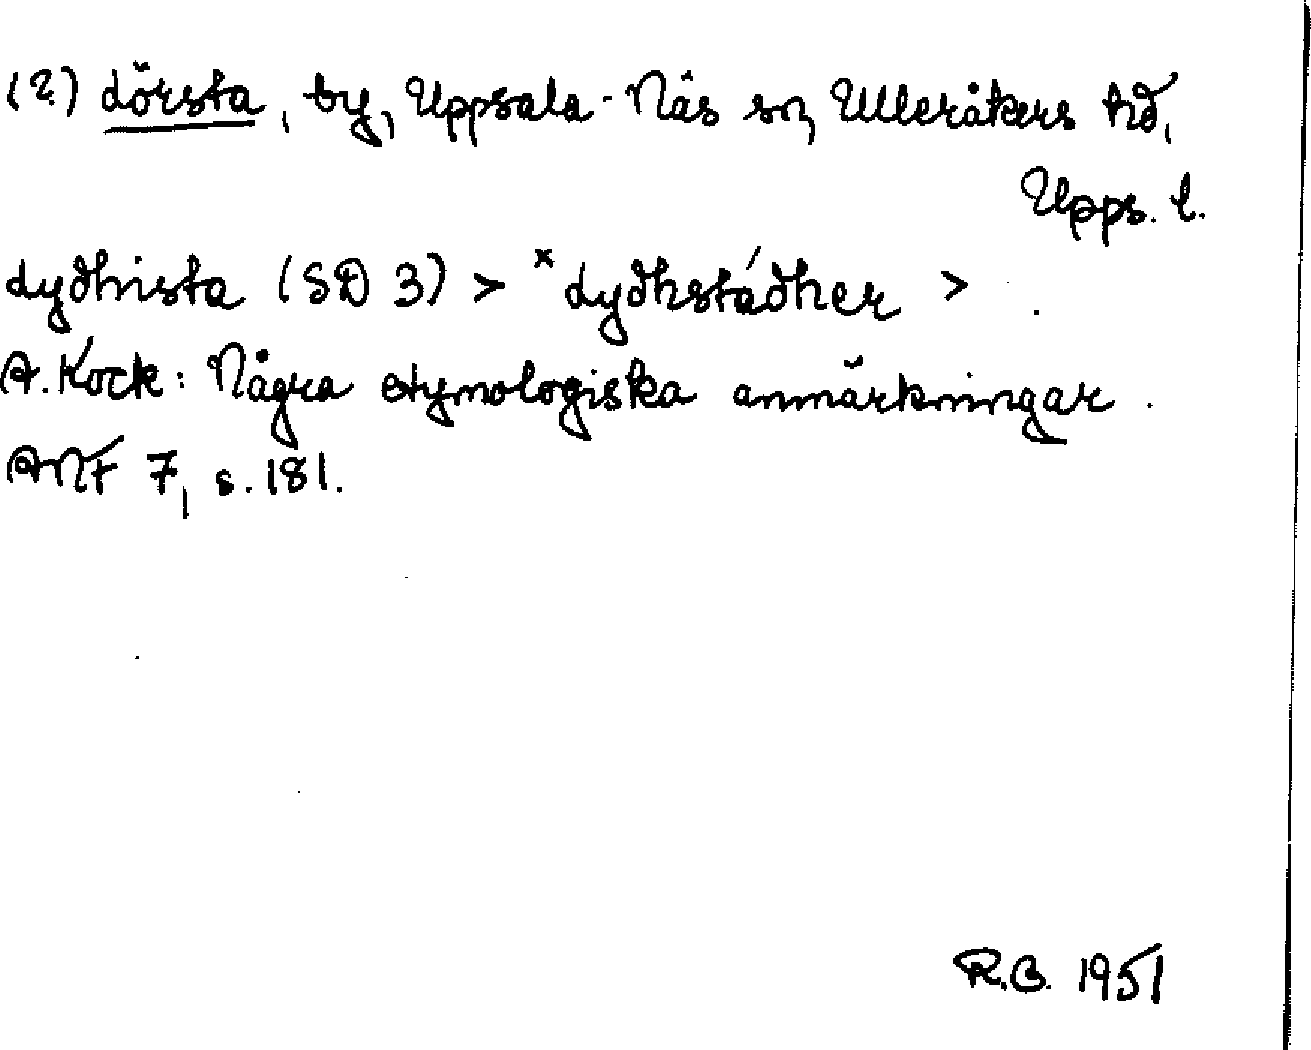 (?) Dörsta, by, Uppsala-Näs sn, Ulleråkers hd,
Upps. l.
Dydhista (SD 3) > *Dydhstádher >
A. Kock: Några etymologiska anmärkningar.
ANF 7, s. 181.
R.B. 1951